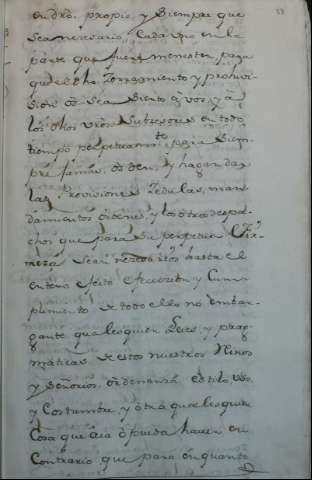 en dho. propio, y siempre que
sea nesesario, Cada vno en la
parte que fuere menester para
que este dho Zerramiento y prohivi-
sion os sea sierto a vos, y a
los dhos vros Subcesores en todo
tiempo perpetuamte. para siem-
pre jamas, os den, y hagan dar
las Provisiones Zedulas, man-
damientos ordenes, y los otros despa-
chos que para su perpetua Fir-
meza sean nesesarios hasta el
entero efecto efecucion y Cum-
plimiento de todo ello no embar-
gante qualesquier Leies, y prag-
maticas de estos nuestros Reinos
y Señorios, ordenanzas, estilo, vso,
y Costumbre, y otra qualesquier
Cosa que aia ò pueda haver en
Contrario, que para en quanto